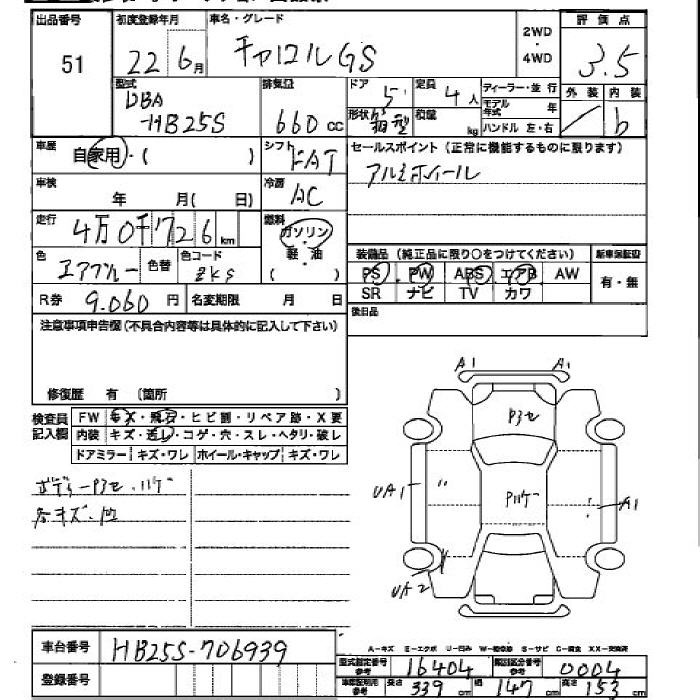 出品番号 初度登録年月 車名・グレード 2WD・4WD 評価点
51 22年6月 キャロルGS 3.5
型式 排気量 ドア 定員 ディーラー・並行 外装 内装
DBA-HB25S 660cc 5 4人 モデル年式 年 b
形状 箱型 積量 kg ハンドル 左・右
車歴 自家用・( ) シフト FAT セールスポイント(正常に機能するものに限ります)
車検 年 月( 日) 冷房 AC アルミホイール
走行 4万0千726km 燃料 ガソリン・軽油( )
色 エアブルー 色替 色コード ZKS
装備品(純正品に限り○をつけてください) 新車保証書
PS PW ABS エアB AW 有・無
SR ナビ TV カワ
R券 9.060円 名変期限 月 日 後日品
注意事項申告欄(不具合内容等は具体的に記入して下さい)
修復歴 有(箇所 )
検査員記入欄 FW キズ・飛石・ヒビ割・リペア跡・X要
内装 キズ・汚レ・コゲ・穴・スレ・ヘタリ・破レ
ドアミラー キズ・ワレ ホイール・キャップ キズ・ワレ
ボディーP3セ・ハケ
各キズ・凹
A1 A1
P3セ
UA1 Pハケー A1
UA2
車台番号 HB25S-706939
登録番号
A-キズ E-エクボ U-凹み W-補修跡 S-サビ C-腐食 XX-交換済
型式指定番号 参考 16404 類別区分番号 参考 0004
車庫証明用 参考 長さ 339cm 幅 147cm 高さ 153cm